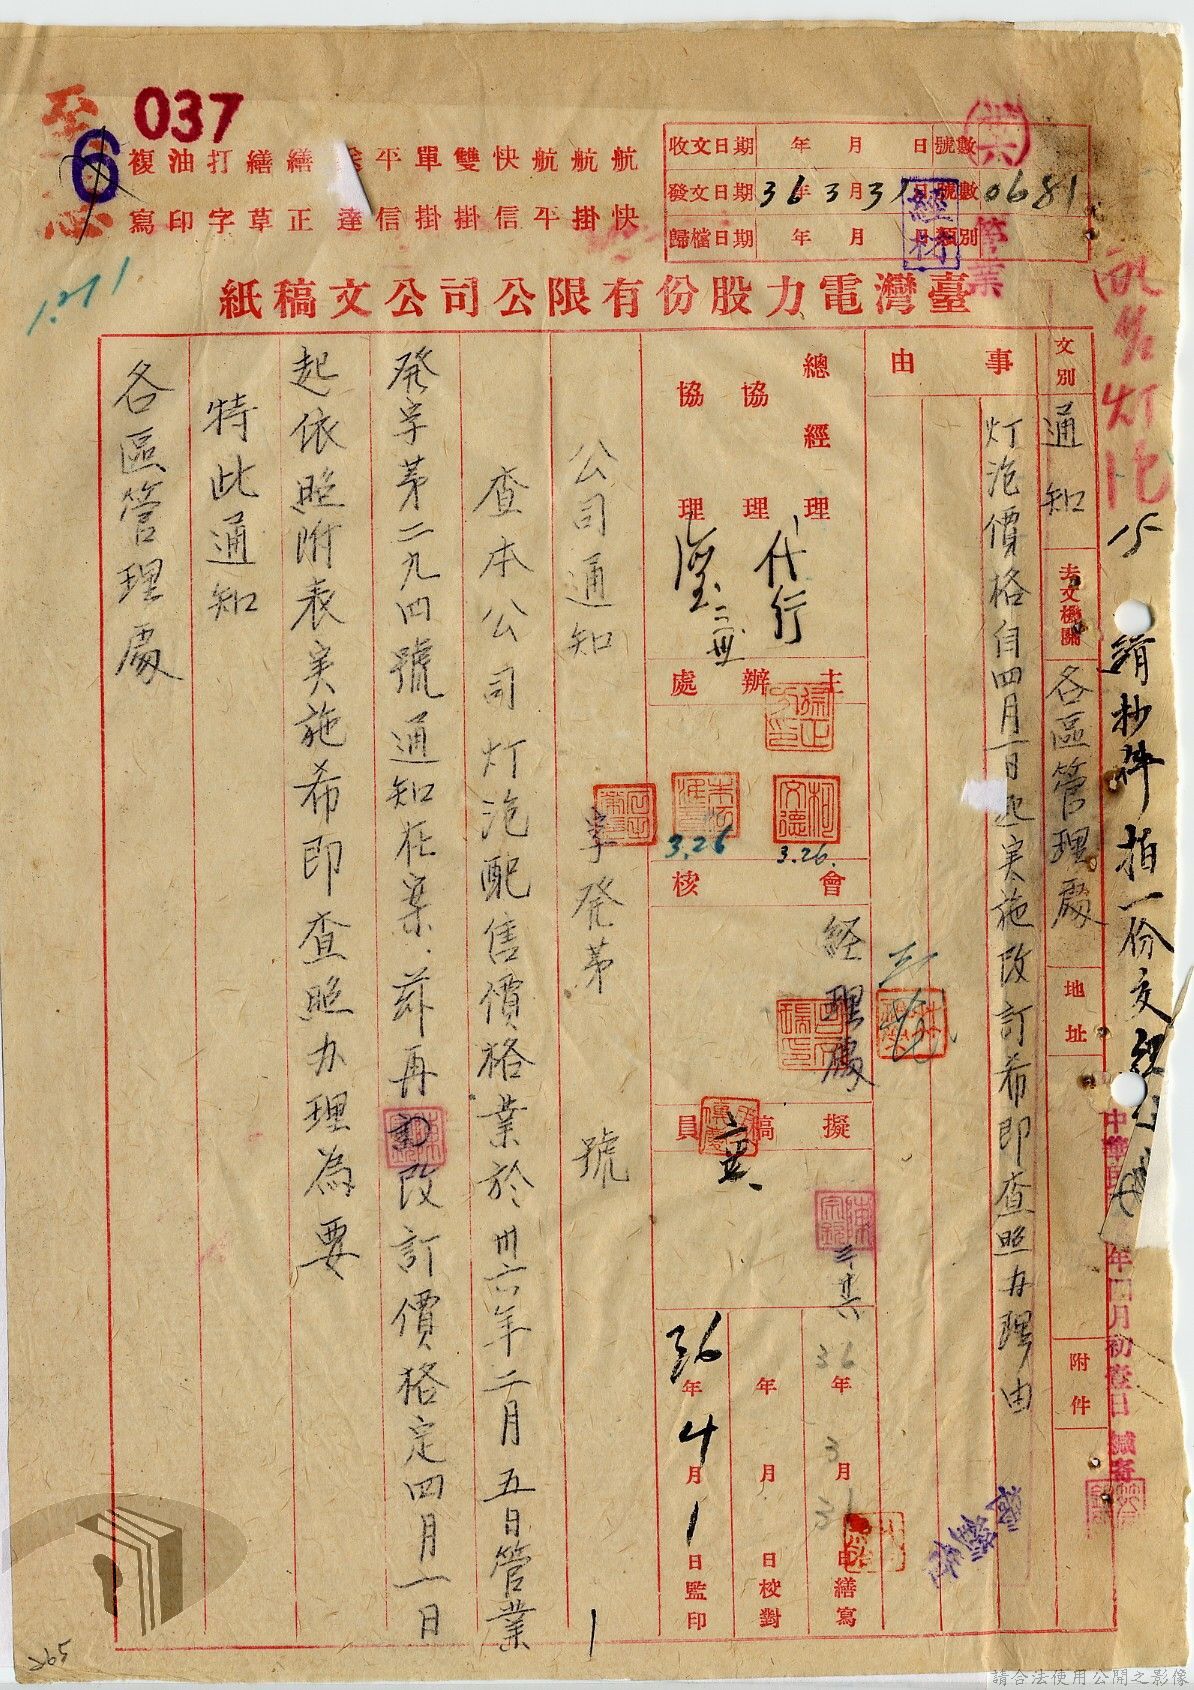 至急
037
6
航航航快雙單平 繕繕打油複
快掛平信掛掛信達正草字印寫
收文日期 年 月 日 號數
發文日期 36年3月31日 號數 0681
歸檔日期 年 月 日 類別
經材
管業
1.271
臺灣電力股份有限公司公文稿紙
文別 通知
去文機關 各區管理處
地址
附件
中華民 年四月初壹日 緘寄
抄件 一份交
事由
灯泡價格自四月一日起実施改訂希即查照办理由
總經理
協理 代行
協理
主辦處
柯文德 3.26.
3.26
會核
経理處
擬稿員
36年3月31日繕寫
年 月 日校對
36年4月1日監印
公司通知 字発苐 號
查本公司灯泡配售價格業於卅六年二月五日管業
発字苐二九四號通知在案.茲再改訂價格定四月一日
起依照附表実施希即查照办理為要
特此通知
各區管理處
265
請合法使用公開之影像